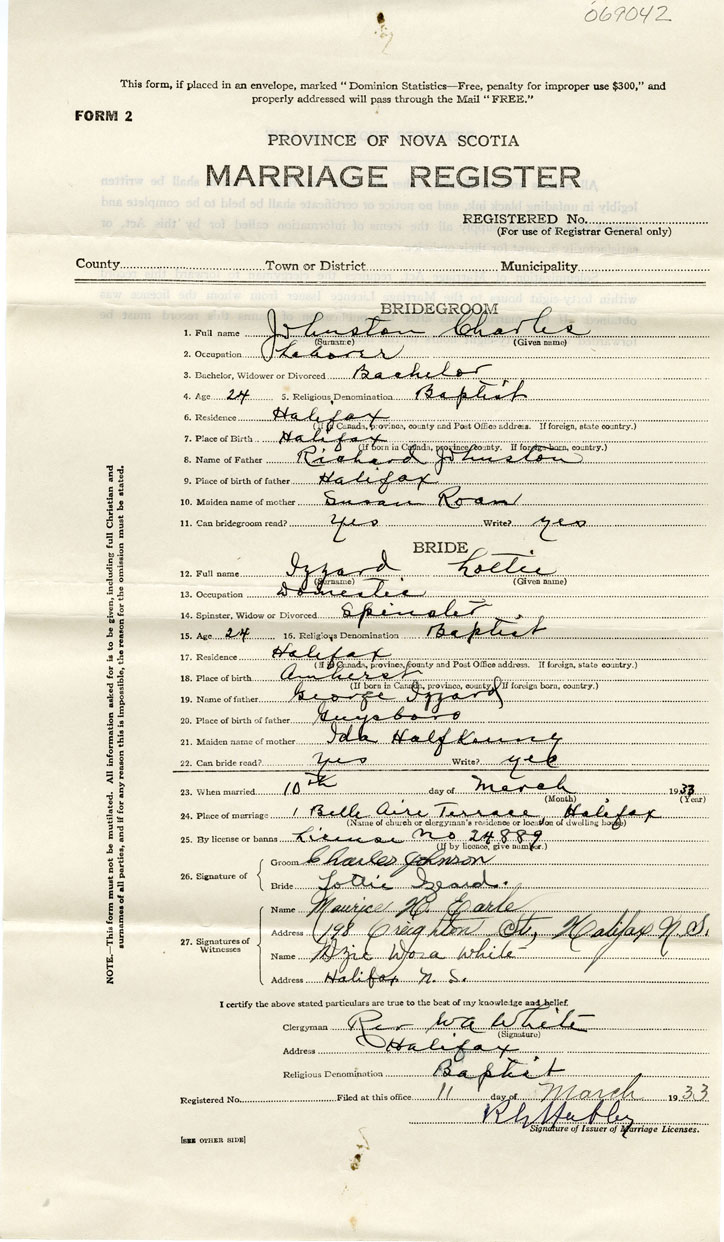 069042
This form, if placed in an envelope, marked "Dominion Statistics—Free, penalty for improper use $300," and
properly addressed will pass through the Mail "FREE."
FORM 2
PROVINCE OF NOVA SCOTIA
MARRIAGE REGISTER
REGISTERED No.
(For use of Registrar General only)
County Town or District Municipality
BRIDEGROOM
1. Full name Johnston Charles
(Surname) (Given name)
2. Occupation Labourer
3. Bachelor, Widower or Divorced Bachelor
4. Age 24 5. Religious Denomination Baptist
6. Residence Halifax
(If in Canada, province, county and Post Office address. If foreign, state country.)
7. Place of Birth Halifax
(If born in Canada, province, county. If foreign born, country.)
8. Name of Father Richard Johnston
9. Place of birth of father Halifax
10. Maiden name of mother Susan Roan
11. Can bridegroom read? yes Write? yes
BRIDE
12. Full name Izzard Lottie
(Surname) (Given name)
13. Occupation Domestic
14. Spinster, Widow or Divorced Spinster
15. Age 24 16. Religious Denomination Baptist
17. Residence Halifax
(If in Canada, province, county and Post Office address. If foreign, state country.)
18. Place of birth Amherst
(If born in Canada, province, county. If foreign born, country.)
19. Name of father George Izzard
20. Place of birth of father Guysboro
21. Maiden name of mother Ida Halfkenny
22. Can bride read? yes Write? yes
23. When married 10th day of March 1933
(Month) (Year)
24. Place of marriage 1 Belle Aire Terrace, Halifax
(Name of church or clergyman's residence or location of dwelling house)
25. By license or banns License No 24889
(If by licence, give number.)
26. Signature of
Groom Charles Johnson
Bride Lottie Izzard.
27. Signatures of Witnesses
Name Maurice H. Earle
Address 198 Creighton St, Halifax N.S.
Name White
Address Halifax N.S.
I certify the above stated particulars are true to the best of my knowledge and belief.
Clergyman Rev WA White
(Signature)
Address Halifax
Religious Denomination Baptist
Registered No. Filed at this office 11 day of March 1933
Signature of Issuer of Marriage Licenses.
[SEE OTHER SIDE]
NOTE.—This form must not be mutilated. All information asked for is to be given, including full Christian and
surnames of all parties, and if for any reason this is impossible, the reason for the omission must be stated.